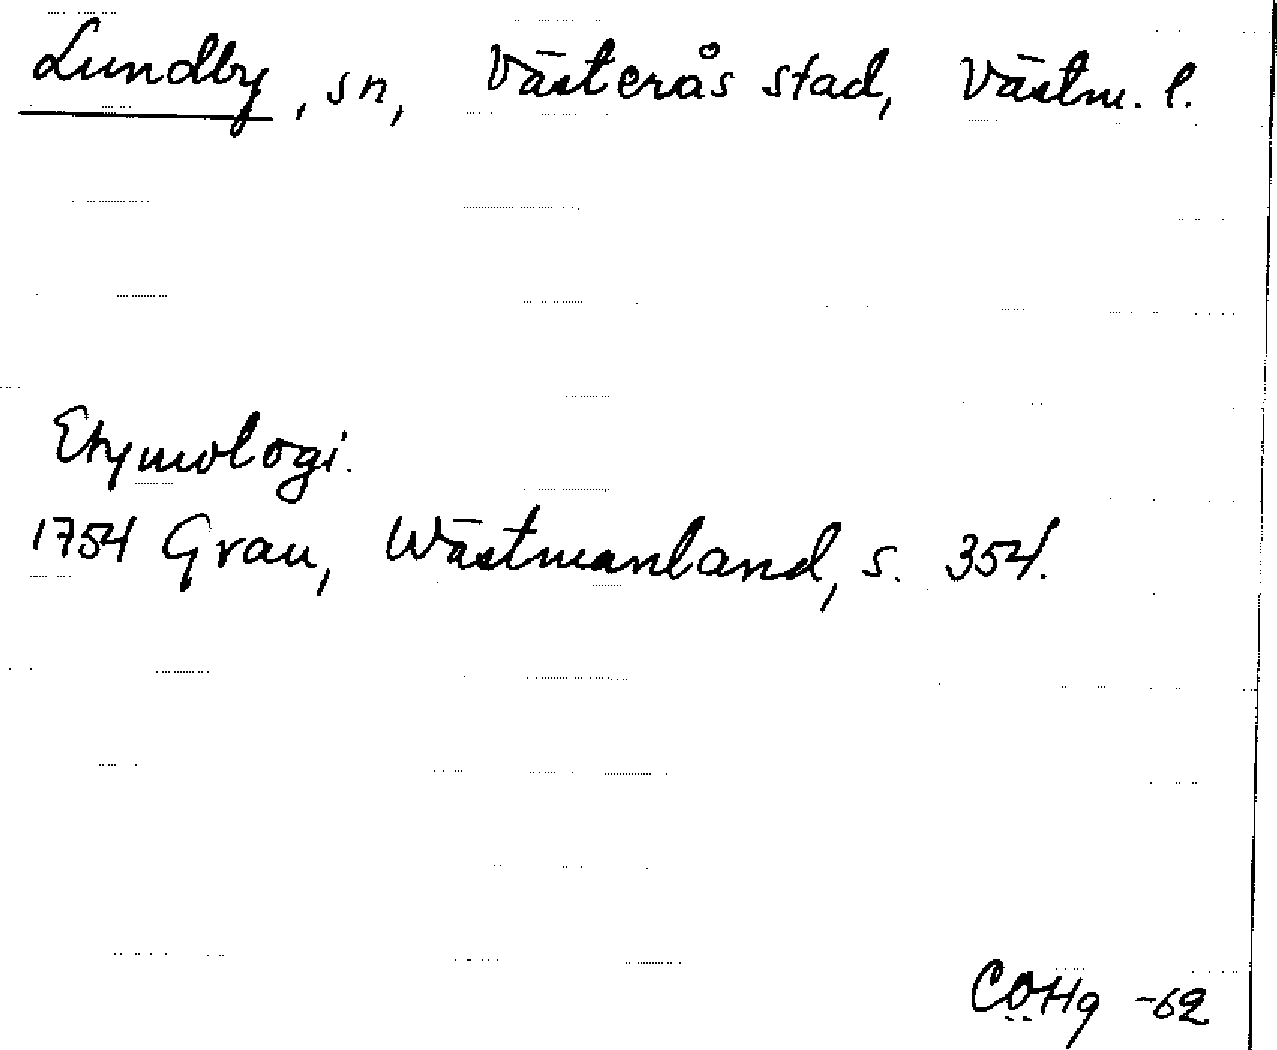 Lundby, sn, Västerås stad, Västm. l.
Etymologi.
1754 Grau, Wästmanland, s. 354.
COHg -62